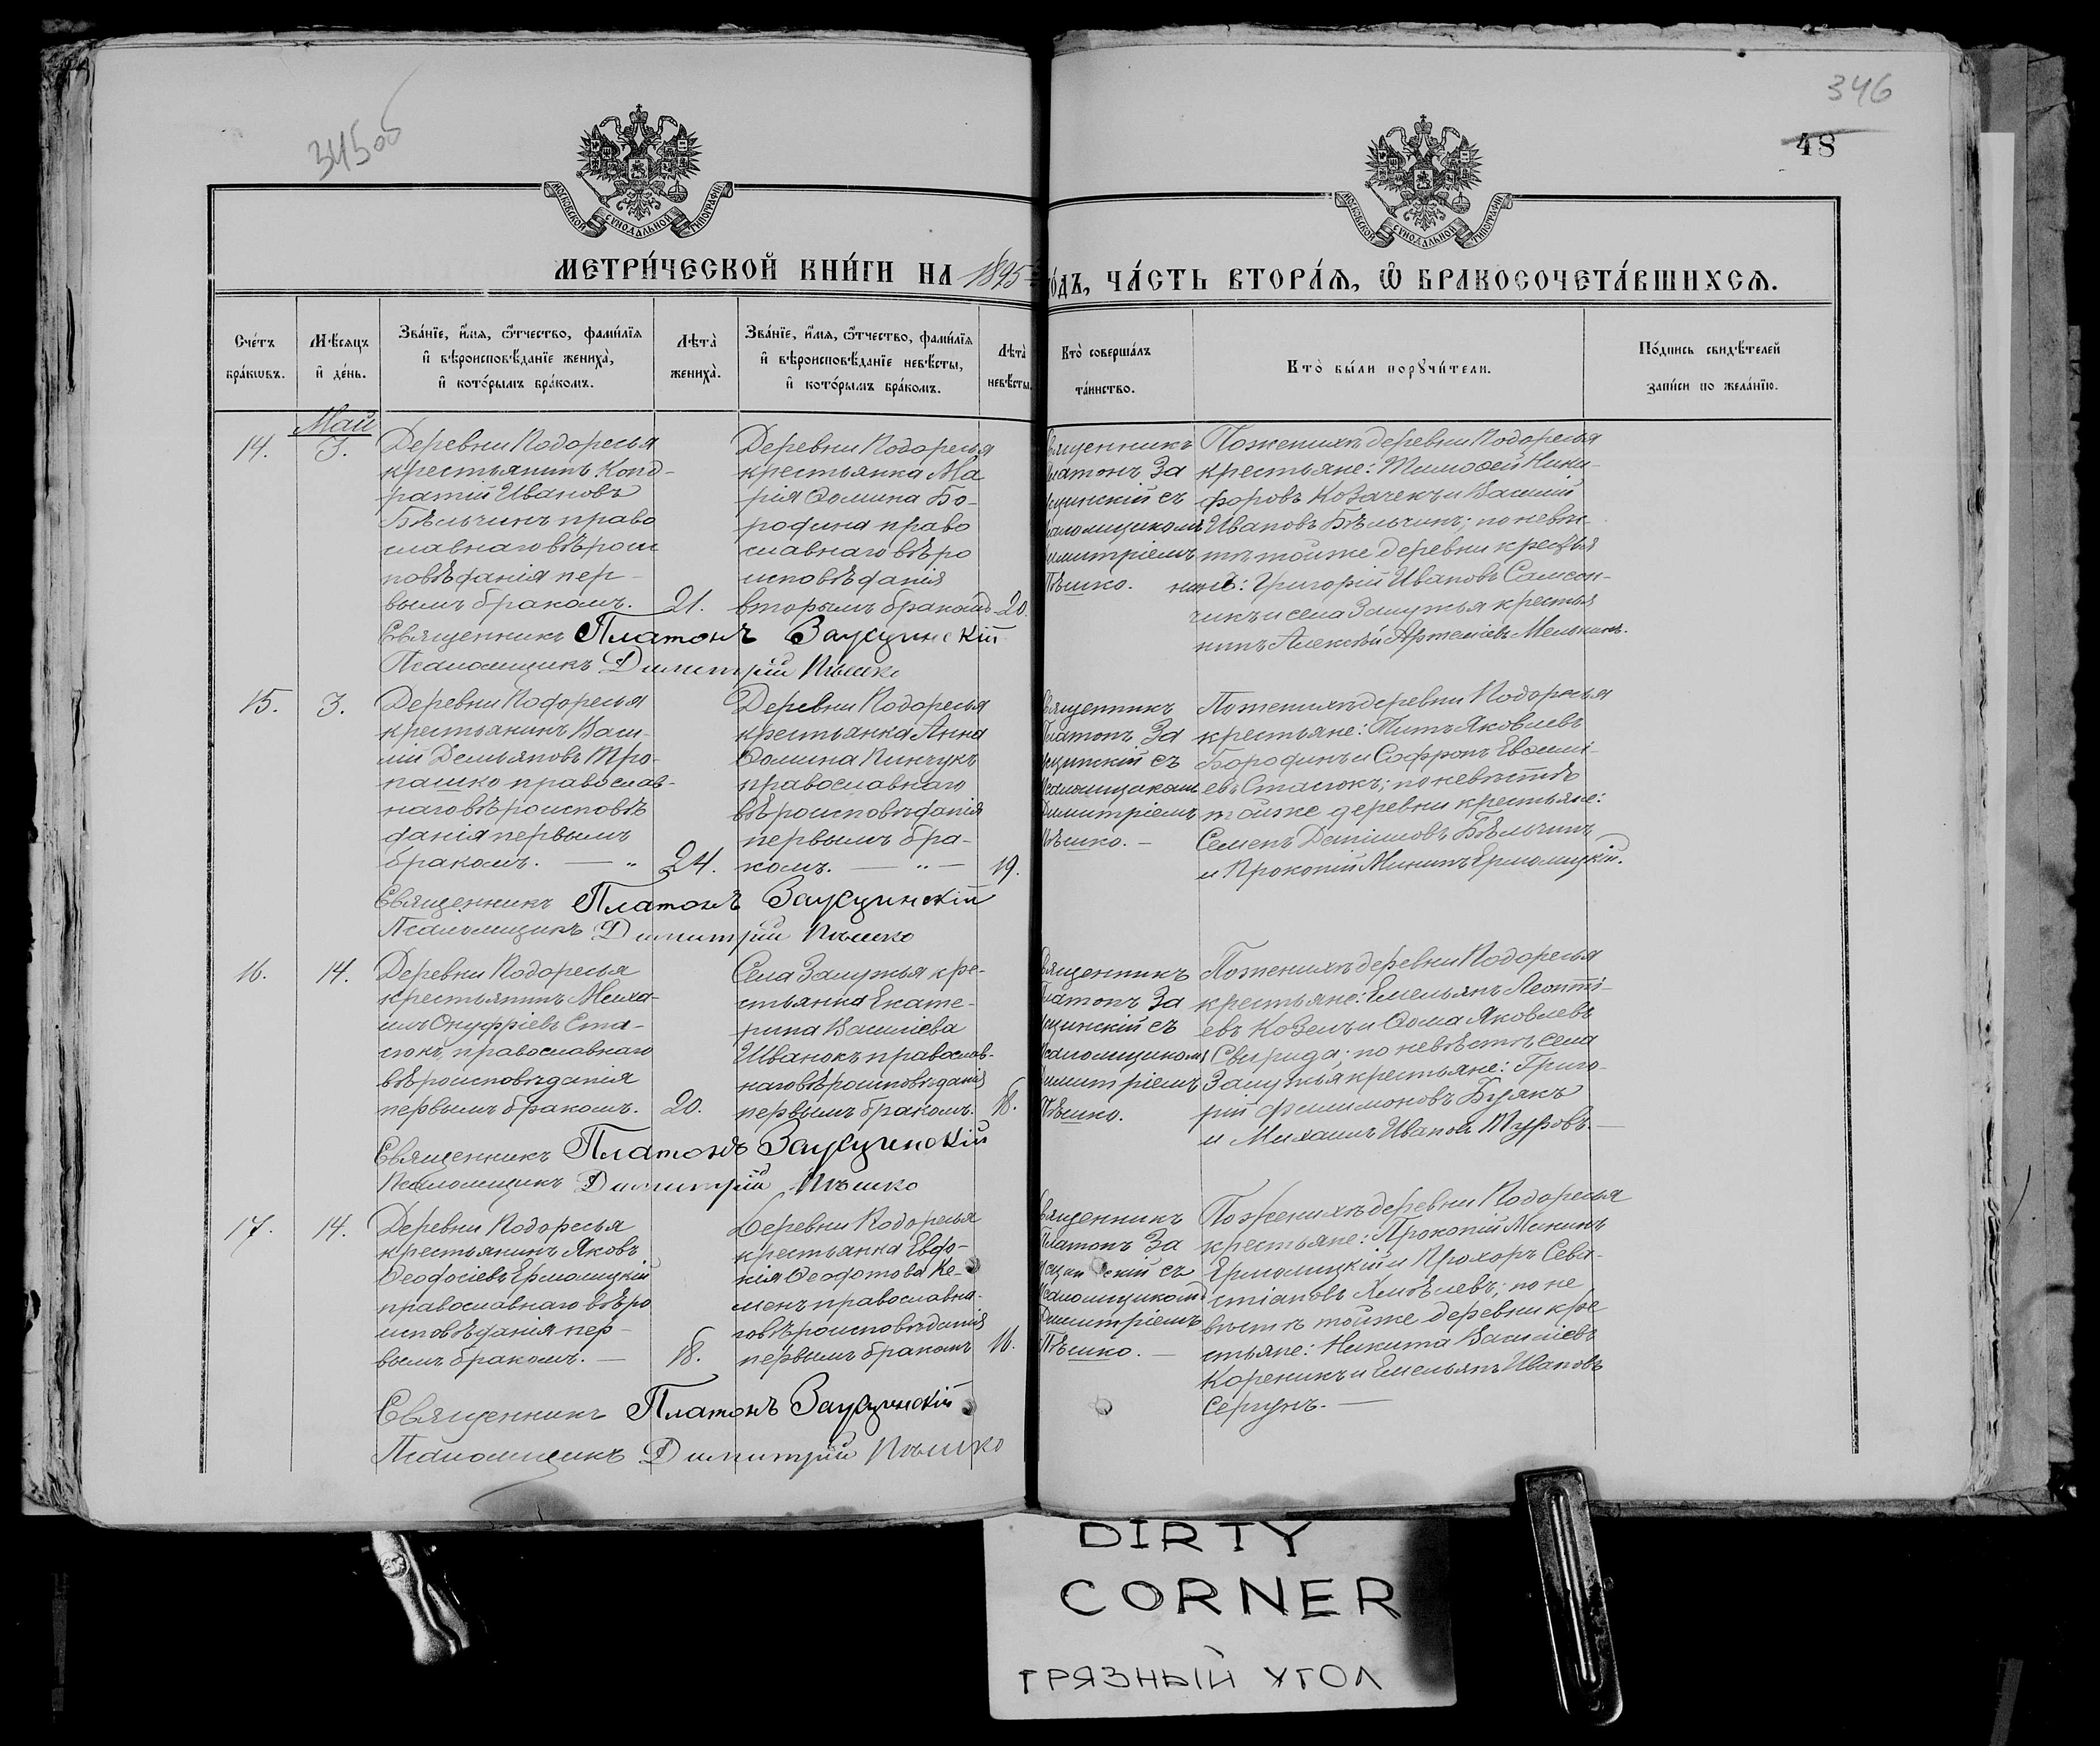 345об
346
48
МОСКОВСКОЙ СѴНОДАЛЬНОЙ ТИПОГРАФІИ
МОСКОВСКОЙ СѴНОДАЛЬНОЙ ТИПОГРАФІИ
МЕТРИ́ЧЕСКОЙ КНИ́ГИ НА 1895
О́ДЪ, ЧА́СТЬ ВТОРА́Я, Ѽ БРАКОСОЧЕТА́ВШИХСѦ.
Сче́тъ бра́кѡвъ.
Мѣ́сяцъ и҆ де́нь.
Зва́нїе, и҆́мѧ, ѻ҆́тчество, фами́лїѧ
и҆ вѣроисповѣ́данїе жениха̀,
и҆ кото́рымъ бра́комъ.
Лѣта̀ жениха̀.
Зва́нїе, и҆́мѧ, ѻ҆́тчество, фами́лїѧ
и҆ вѣроисповѣ́данїе невѣ́сты,
и҆ кото́рымъ бра́комъ.
Лѣта̀ невѣ́сты.
Кто̀ соверша́лъ
та́инство.
Кто̀ бы́ли порꙋчи́тели.
По́дпись свидѣ́телей
за́писи по жела́нїю.
Май
14.
3.
Деревни Подоресья
крестьянинъ Конд-
ратій Ивановъ
Бѣльчикъ право
славнаго вѣроис
повѣданія пер-
вымъ бракомъ.
21.
Деревни Подоресья
крестьянка Ма
рія Ѳомина Бо-
родина право
славнаго вѣро
исповѣданія
вторымъ бракомъ
20.
вященникъ
латонъ За
усцинскій съ
саломщикомъ
имитріемъ
Пѣшко.
По женихѣ деревни Подоресья
крестьяне: Тимоѳей Ники-
форовъ Козачекъ и Василій
Ивановъ Бѣльчикъ; по невѣс-
тѣ тойже деревни крестья
нинъ: Григорій Ивановъ Самсон-
чикъ и села Залужья крестья
нинъ Алексѣй Артеміевъ Мельникъ.
Священникъ Платонъ Заусцинскій
Псаломщикъ Димитрій Пѣшко
15.
3.
Деревни Подоресья
крестьянинъ Васи-
лій Демьяновъ Тро-
пашко православ-
наго вѣроисповѣ
данія первымъ
бракомъ. — „
24.
Деревни Подоресья
крестьянка Анна
Ѳомина Пинчукъ
православнаго
вѣроисповѣданія
первымъ бра-
комъ. — „ —
19.
вященникъ
Платонъ За
усцинскій съ
саломщикомъ
Димитріемъ
Пѣшко. —
По женихѣ деревни Подоресья
крестьяне: Титъ Яковлевъ
Бородинъ и Софронъ Евсеи-
евъ Стасюкъ; по невѣстѣ
тойже деревни крестьяне:
Семенъ Даниловъ Бѣльчикъ
и Прокопій Мининъ Ермолицкій.
Священникъ Платонъ Заусцинскій
Псаломщикъ Димитрій Пѣшко
16.
14.
Деревни Подоресья
крестьянинъ Миха-
илъ Онуфріевъ Ста-
сюкъ, православнаго
вѣроисповѣданія
первымъ бракомъ.
20.
Села Залужья кре-
стьянка Екате-
рина Василіева
Иванокъ православ-
наго вѣроисповѣданія
первымъ бракомъ.
18.
вященникъ
латонъ За
усцинскій съ
саломщикомъ
имитріемъ
Пѣшко.
По женихѣ деревни Подоресья
крестьяне: Емельянъ Леонті-
евъ Козелъ и Ѳома Яковлевъ
Свирида; по невѣстѣ села
Залужья крестьяне: Григо-
рій Филимоновъ Буякъ
и Михаилъ Ивановъ Туровъ. —
Священникъ Платонъ Заусцинскій
Псаломщикъ Димитрій Пѣшко
17.
14.
Деревни Подоресья
крестьянинъ Яковъ
Ѳеодосіевъ Ермолицкій
православнаго вѣро
исповѣданія пер-
вымъ бракомъ. —
18.
Деревни Подоресья
крестьянка Евдо-
кія Ѳеодотова Ке-
менъ православна-
го вѣроисповѣданія
первымъ бракомъ
16.
вященникъ
Платонъ За
усцинскій съ
саломщикомъ
Димитріемъ
Пѣшко. —
По женихѣ деревни Подоресья
крестьяне: Прокопій Мининъ
Ермолицкій и Прохоръ Сева-
стіановъ Хмѣлевъ; по не
вѣстѣ тойже деревни кре
стьяне: Никита Василіевъ
Кореникъ и Емельянъ Ивановъ
Сергунъ. —
Священникъ Платонъ Заусцинскій
Псаломщикъ Димитрій Пѣшко
DIRTY
CORNER
ГРЯЗНЫЙ УГОЛ